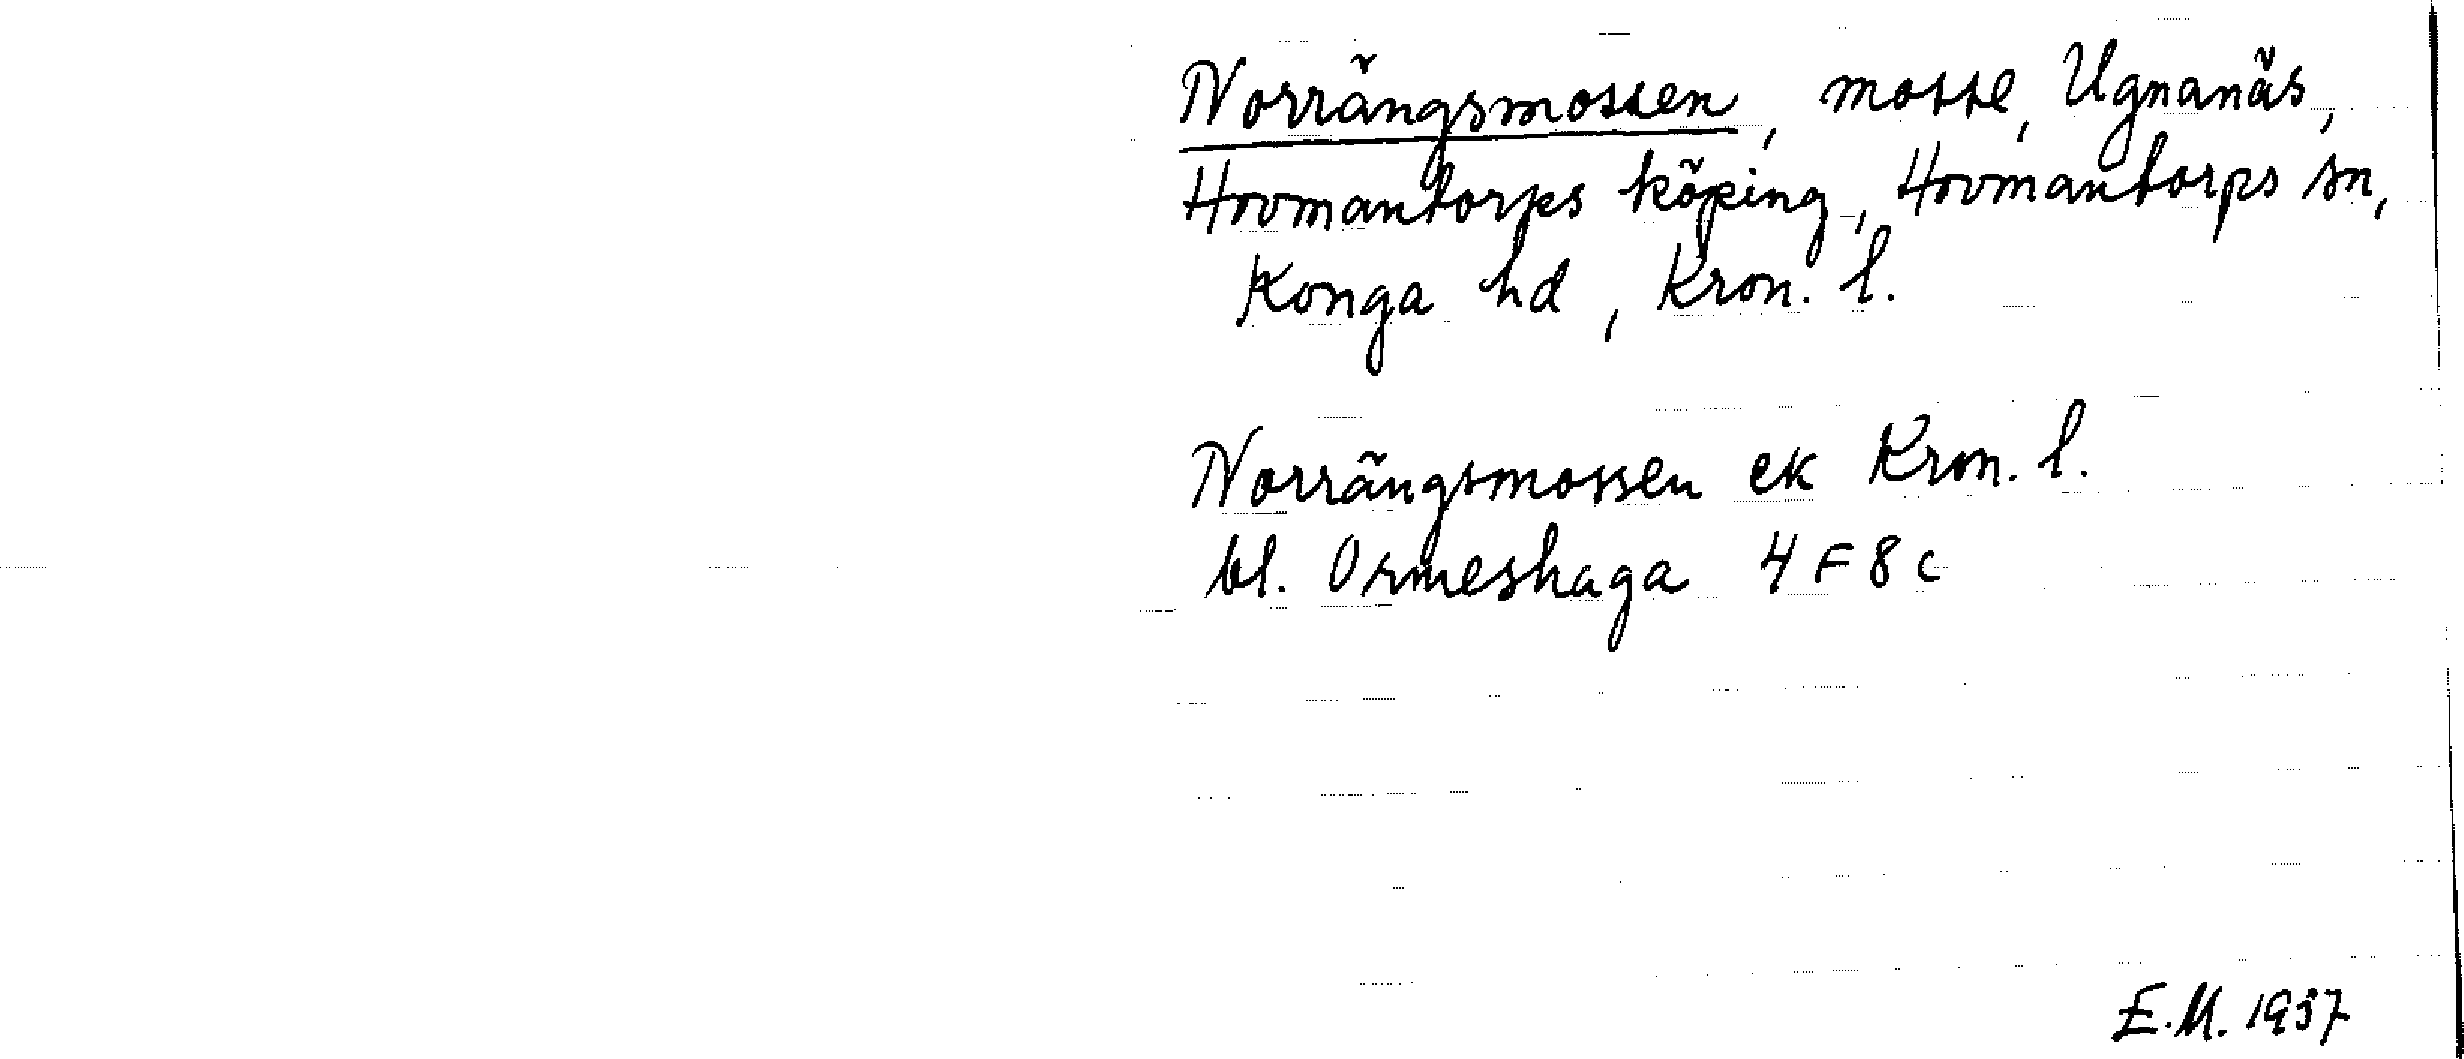 Norrängsmossen, mosse, Ugnanäs,
Hovmantorps köping, Hovmantorps sn,
Konga hd, Kron. l.
Norrängsmossen ek Kron. l.
bl. Ormeshaga 4 F 8 c
E.M. 1957